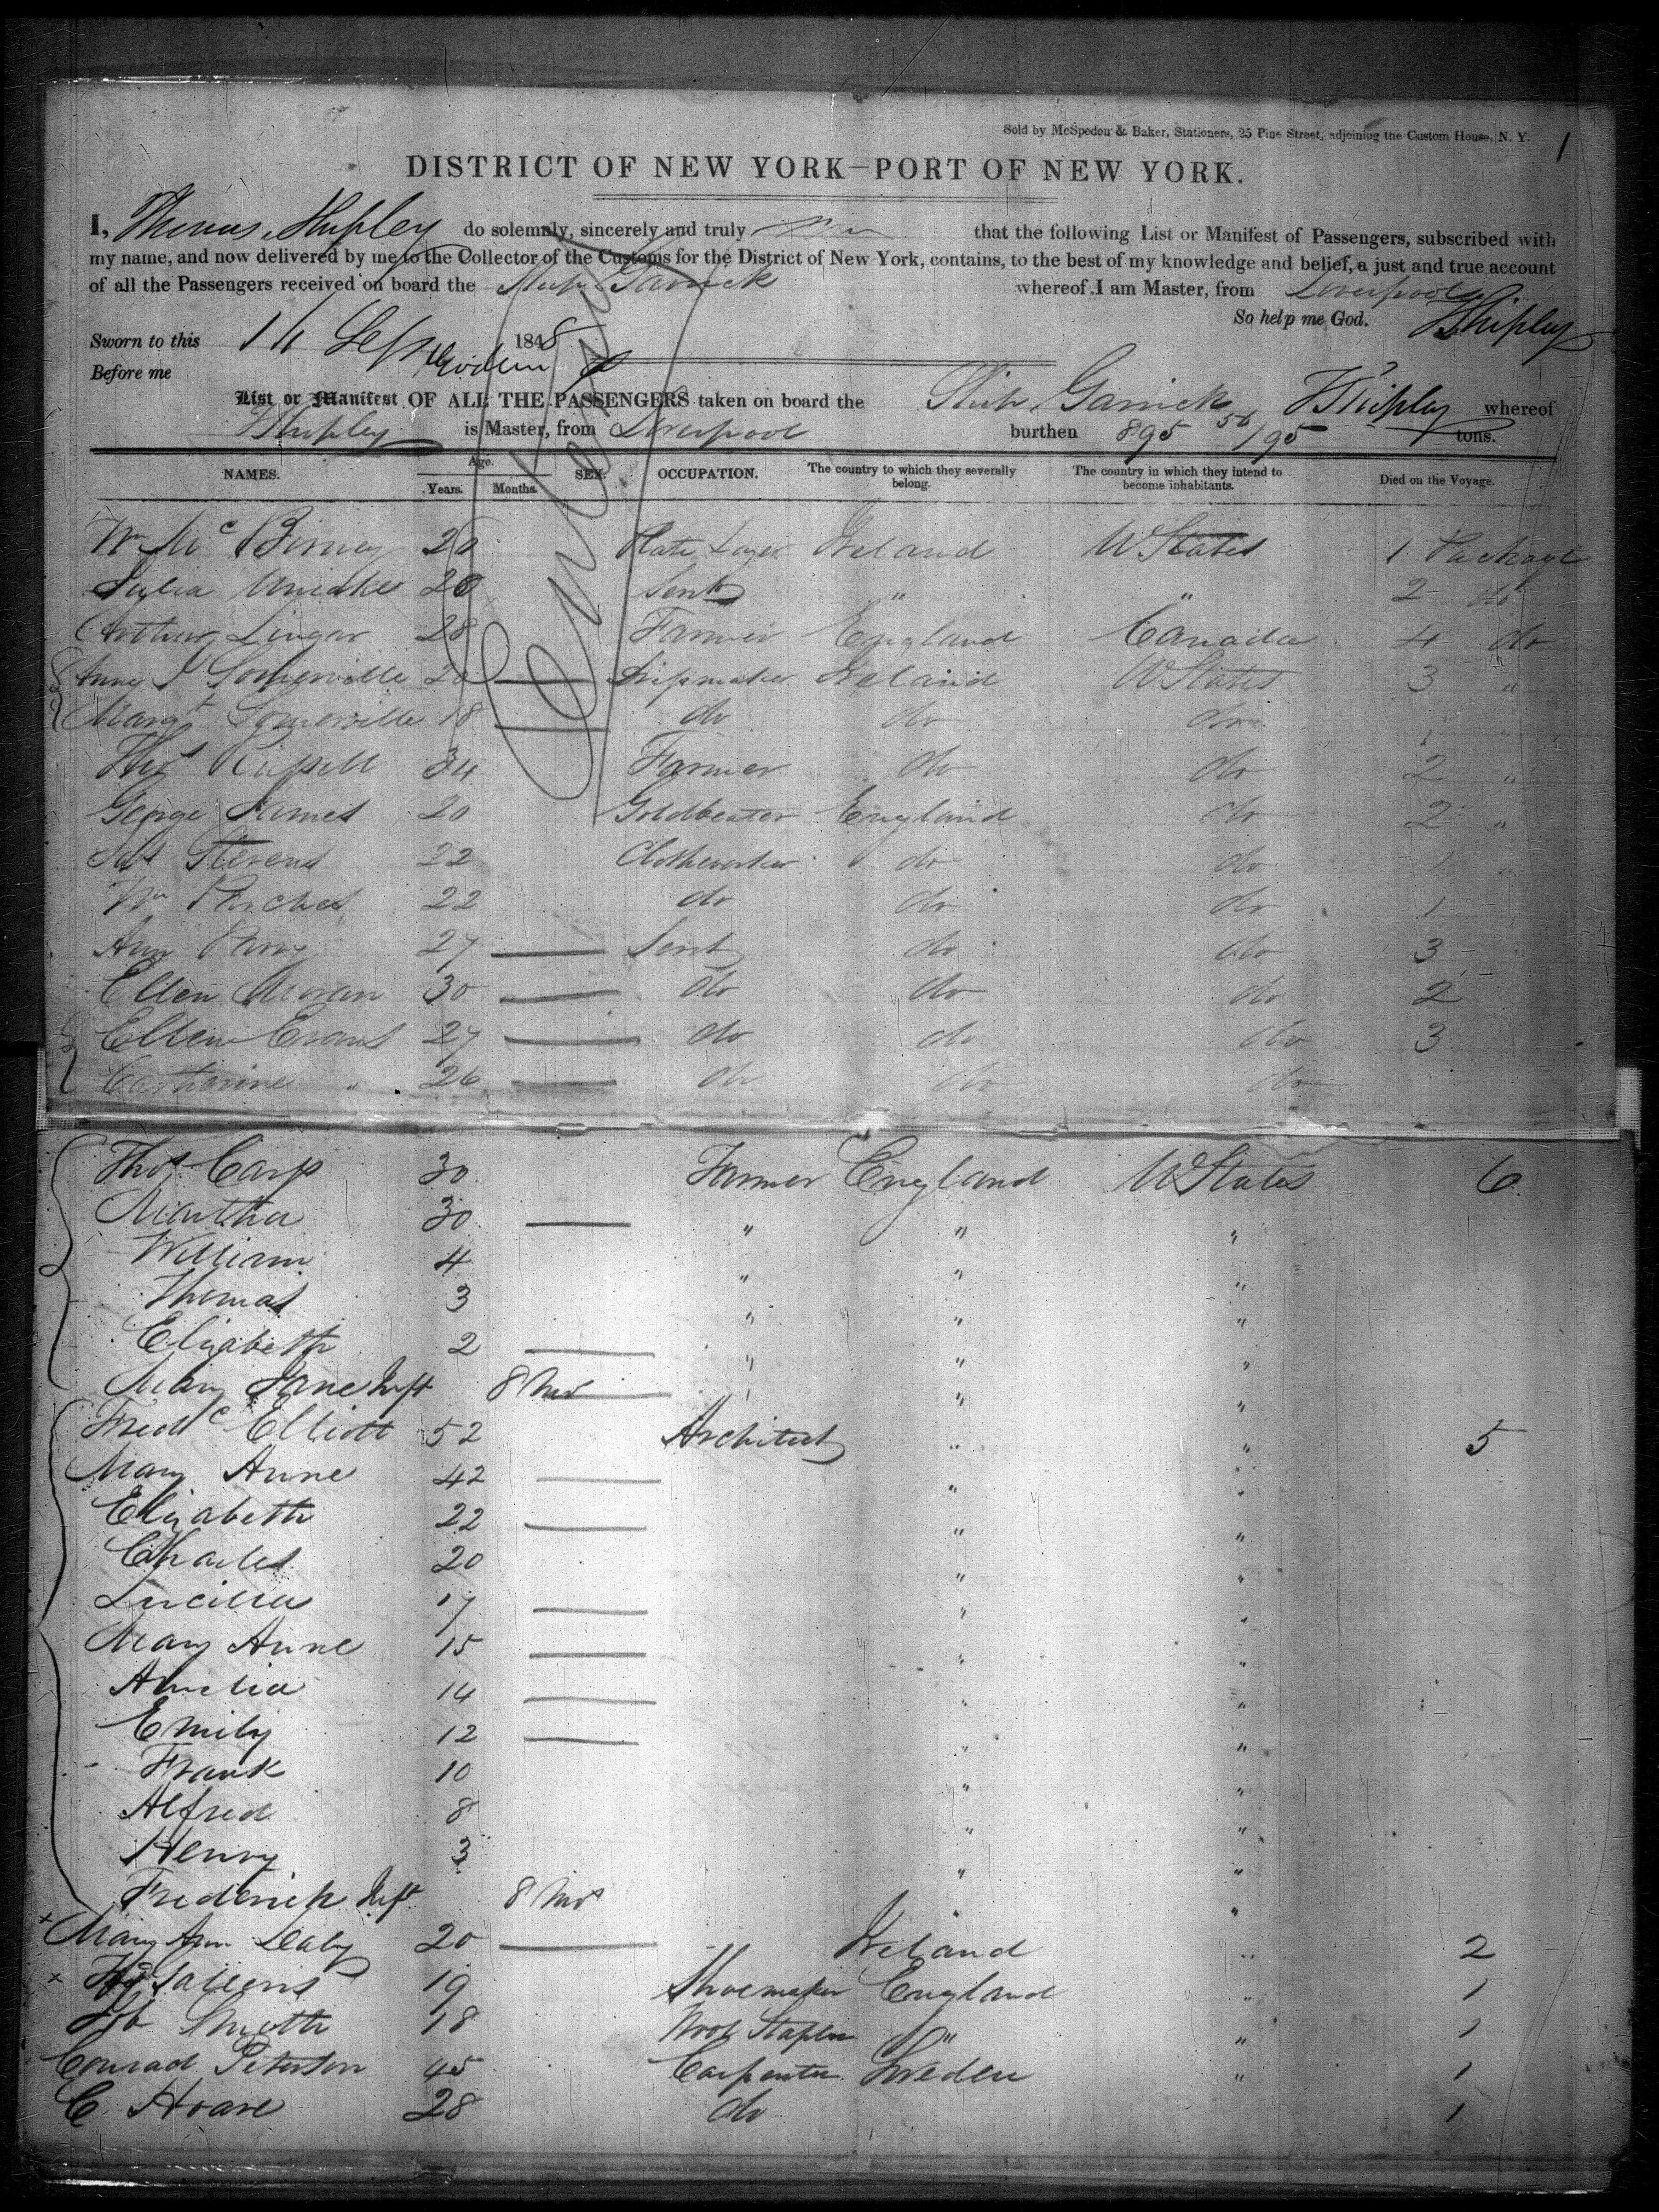 Sold by McSpedon & Baker, Stationers, 25 Pine Street, adjoining the Custom House, N. Y.
1
DISTRICT OF NEW YORK—PORT OF NEW YORK.
I, Thomas Shipley do solemnly, sincerely and truly that the following List or Manifest of Passengers, subscribed with
my name, and now delivered by me to the Collector of the Customs for the District of New York, contains, to the best of my knowledge and belief, a just and true account
of all the Passengers received on board the Ship Garrick whereof I am Master, from Liverpool
So help me God. TShipley
Sworn to this 1848
Before me
List or Manifest OF ALL THE PASSENGERS taken on board the Ship Garrick TShipley whereof
TShipley is Master, from Liverpool burthen 895 50/95 tons.
NAMES. Age. Years. Months. SEX. OCCUPATION. The country to which they severally belong. The country in which they intend to become inhabitants. Died on the Voyage.
Wm Mc Birney 20 Plate Layer Ireland UStates 1 Package
Julia 20 Servt " " 2 do
Arthur Lingar 28 Farmer England Canada 4 do
Somerville 20 Ireland UStates 3 "
Margt Somerville 18 do do do
Thos Russell 34 Farmer do do 2 "
George James 20 Goldbeater England do 2 "
Stevens 22 Clothworker do do 1 "
Wm 22 do do do 1
Ann Parry 27 Servt do do 3
Ellen Moran 30 do do do 2
Ellen Evans 27 do do do 3
Catherine " 26 do do do
Thos Carp 30 Farmer England UStates 6
Martha 30 " " "
William 4 " " "
Thomas 3 " " "
Elizabeth 2 " " "
Mary Jane Inft 8 Mos " " "
Fredc Elliott 52 Architect " " 5
Mary Anne 42 " "
Elizabeth 22 " "
Charles 20 " "
Lucilla 17 " "
Mary Anne 15 " "
Amelia 14 " "
Emily 12 " "
Frank 10 " "
Alfred 8 " "
Henry 3 " "
Frederick Inft 8 Mos " "
x Mary Ann Daly 20 Ireland " 2
x 19 Shoemaker England " 1
Smith 18 Wool Stapler " " 1
Conrad Peterson 45 Carpenter Sweden " 1
C Hoare 28 do 1